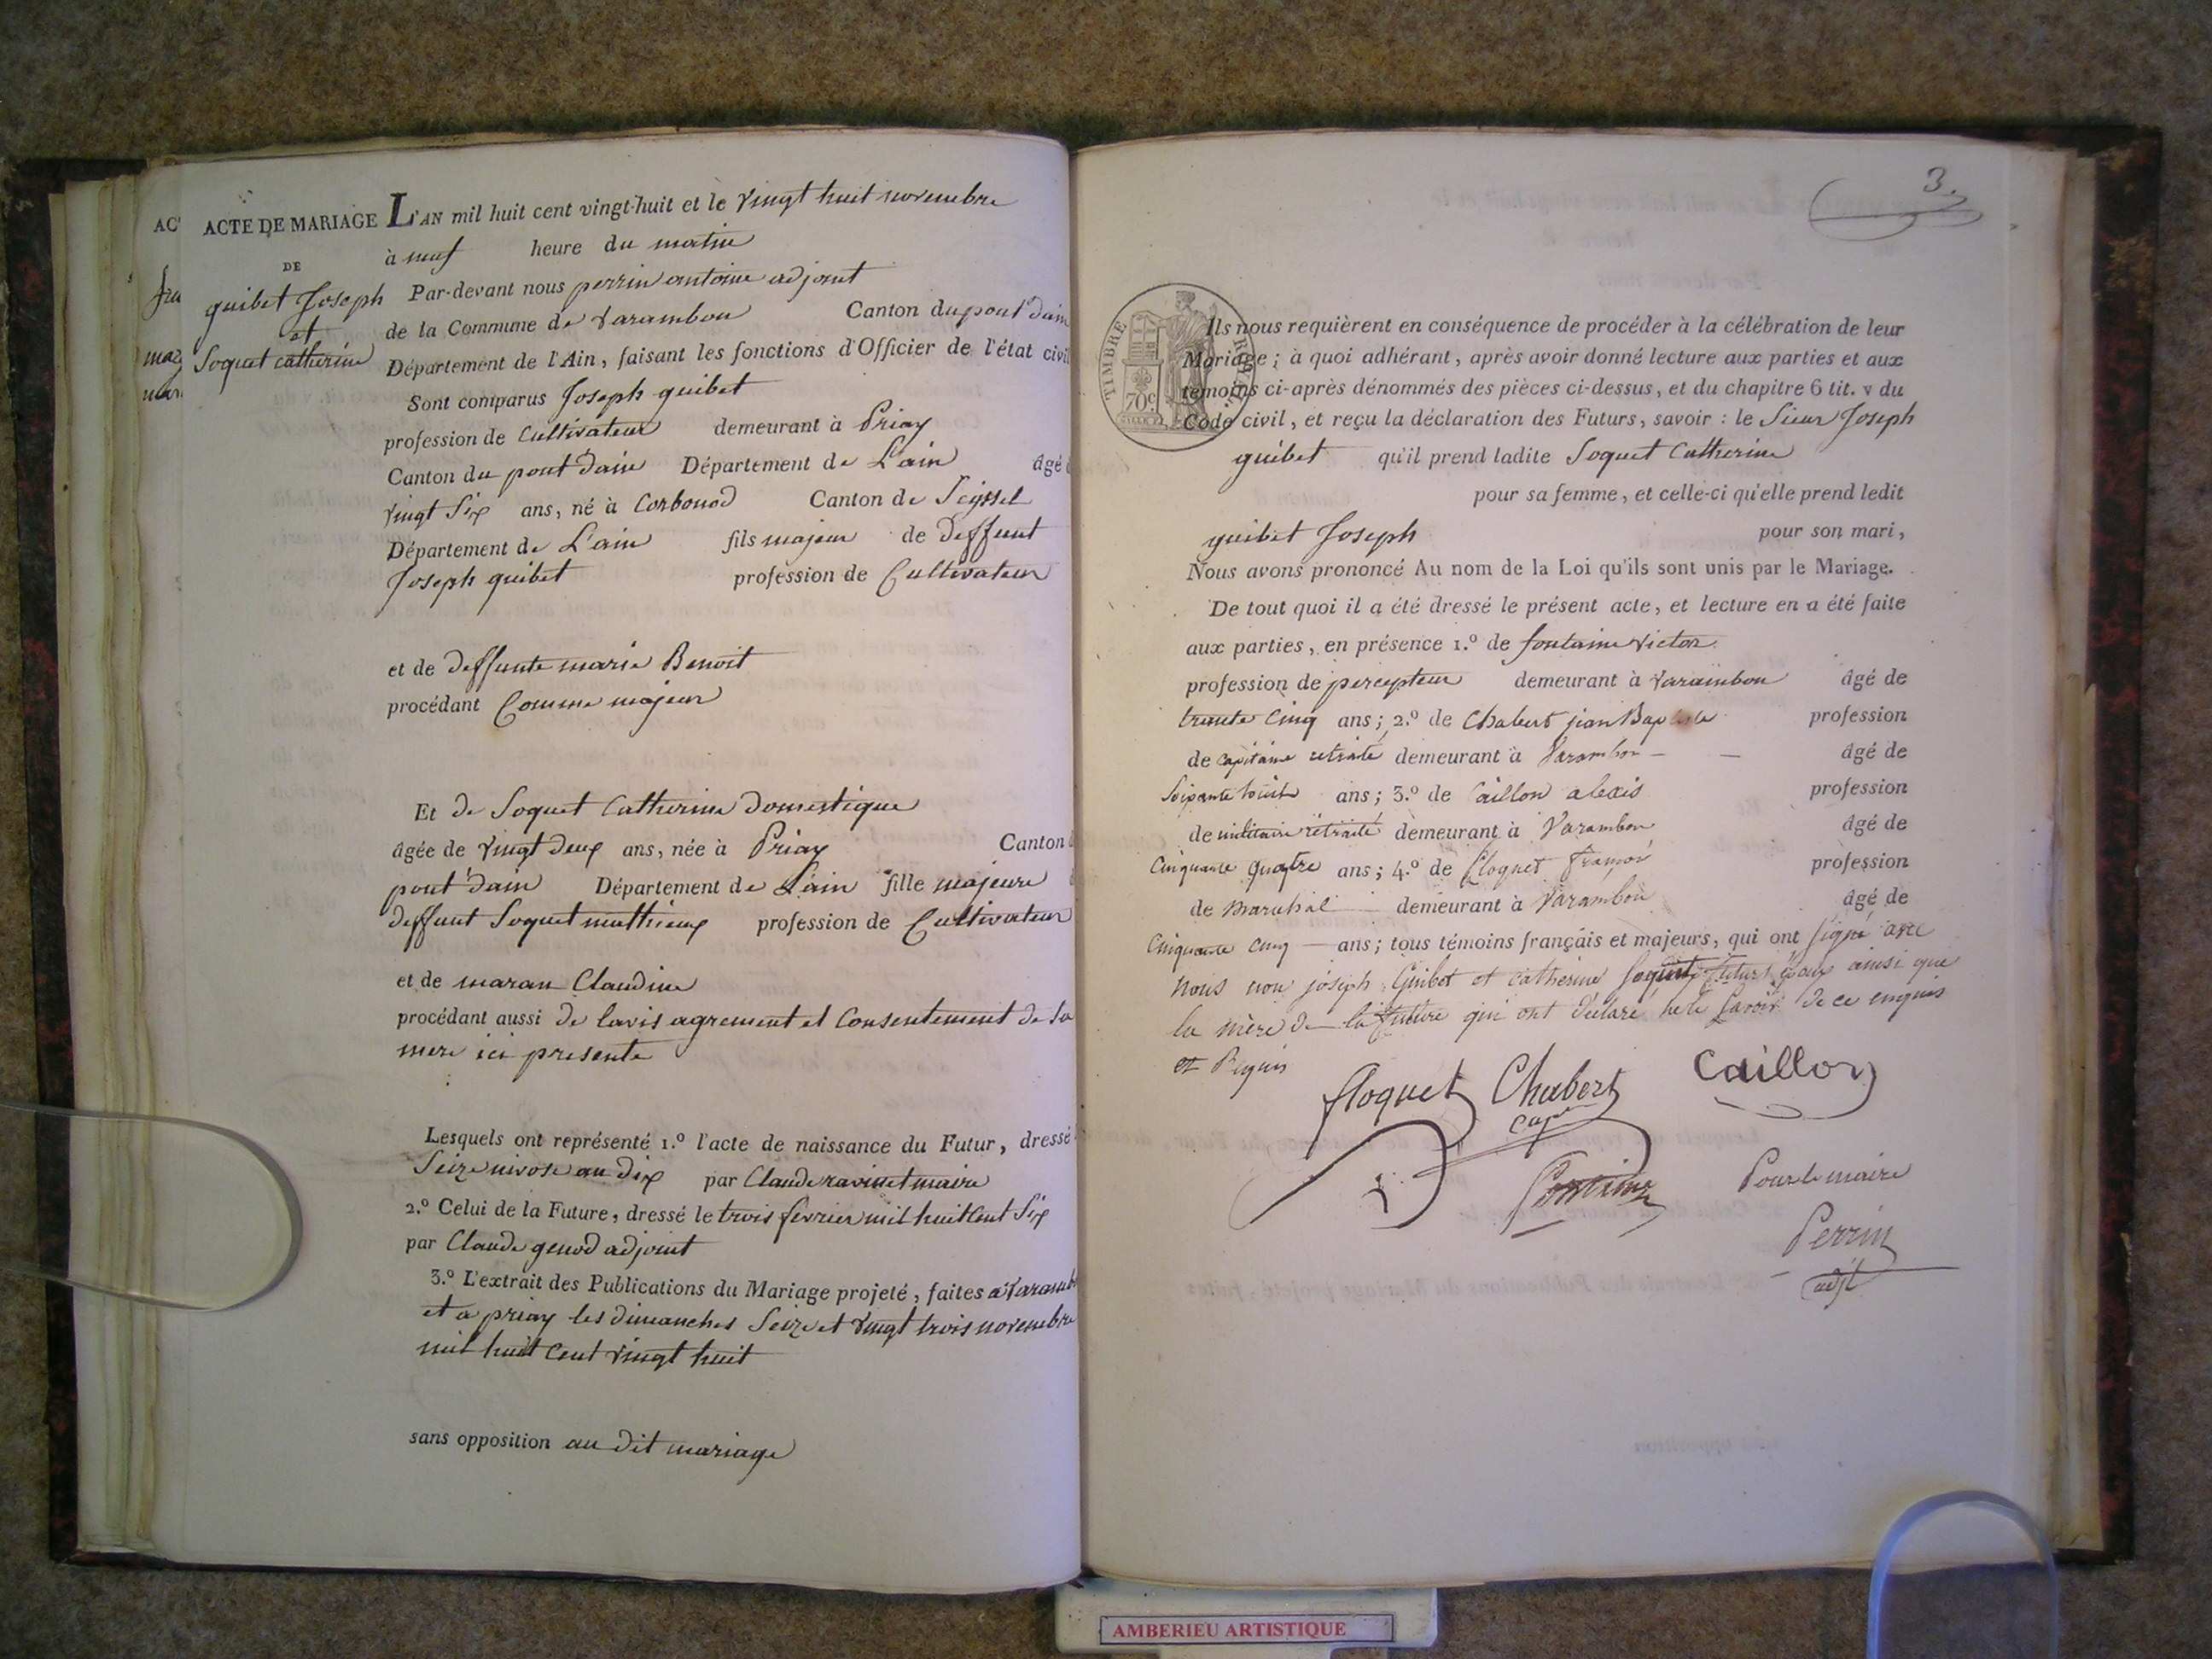 AC
ACTE DE MARIAGE
DE
guibet Joseph
et
Soquet catherine
L'AN mil huit cent vingt-huit et le vingt huit novembre
à neuf heure du matin
Par-devant nous perrin antoine adjoint
de la Commune de varambon Canton du pont d'ain
Département de l'Ain, faisant les fonctions d'Officier de l'état civil
Sont comparus Joseph guibet
profession de Cultivateur demeurant à Priay
Canton du pont d'ain Département de L'ain âgé
vingt Six ans, né à Corbonod Canton de Seyssel
Département de L'ain fils majeur de deffunt
Joseph guibet profession de Cultivateur
et de deffunte marie Benoit
procédant Comme majeur
Et de Soquet Catherine domestique
âgée de vingt deux ans, née à Priay Canton
pont d'ain Département de L'ain fille majeure
deffunt Soquet matthieux profession de Cultivateur
et de maran Claudine
procédant aussi de lavis agrement et Consentement de sa
mere ici presente
Lesquels ont représenté 1.º l'acte de naissance du Futur, dressé
Seize nivose an dix par Claude ravinet maire
2.º Celui de la Future, dressé le trois fevrier mil huit Cent Six
par Claude genod adjoint
3.º L'extrait des Publications du Mariage projeté, faites a varamb
et a priay les dimanches Seize et vingt trois novembre
mil huit Cent vingt huit
sans opposition au dit mariage
3.
TIMBRE ROYAL
70c
Ils nous requièrent en conséquence de procéder à la célébration de leur
Mariage; à quoi adhérant, après avoir donné lecture aux parties et aux
témoins ci-après dénommés des pièces ci-dessus, et du chapitre 6 tit. v du
Code civil, et reçu la déclaration des Futurs, savoir : le Sieur Joseph
guibet qu'il prend ladite Soquet Catherine
pour sa femme, et celle-ci qu'elle prend ledit
guibet Joseph pour son mari,
Nous avons prononcé Au nom de la Loi qu'ils sont unis par le Mariage.
De tout quoi il a été dressé le présent acte, et lecture en a été faite
aux parties, en présence 1.º de fontaine victor
profession de percepteur demeurant à varambon âgé de
trente Cinq ans; 2.º de Chabert jean Baptiste profession
de capitaine retraité demeurant à Varambon — — âgé de
Soixante huit ans; 3.º de Caillon alexis profession
de militaire retraité demeurant à Varambon âgé de
Cinquante quatre ans; 4.º de floquet françois profession
de marechal demeurant à Varambon âgé de
Cinquante cinq — ans; tous témoins français et majeurs, qui ont signé avec
nous non joseph Guibet et catherine Soquet futurs époux ainsi que
la mère de la future qui ont déclaré ne le savoir de ce enquis
et Requis
floquet Chabert Caillon
cape
fontaine Pour le maire
Perrin
adjt
AMBERIEU ARTISTIQUE